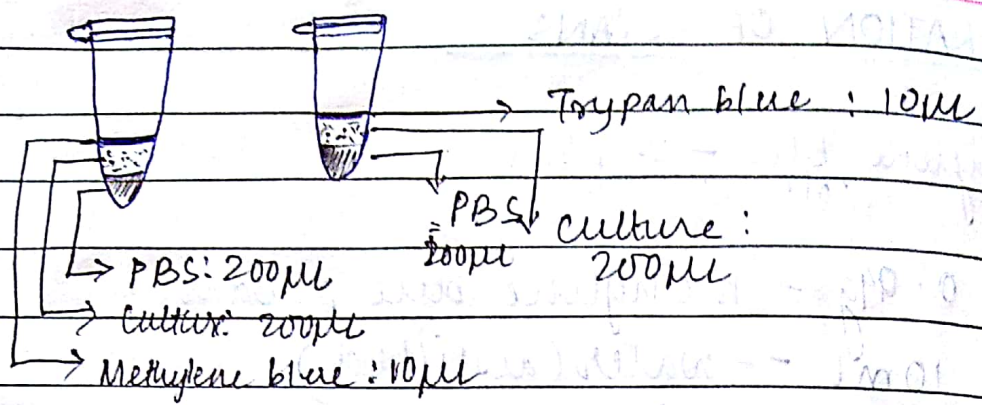 Trypan blue : 10µl
PBS
= 200µl
culture :
200µl
PBS: 200µl
Culture: 200µl
Methylene blue : 10µl